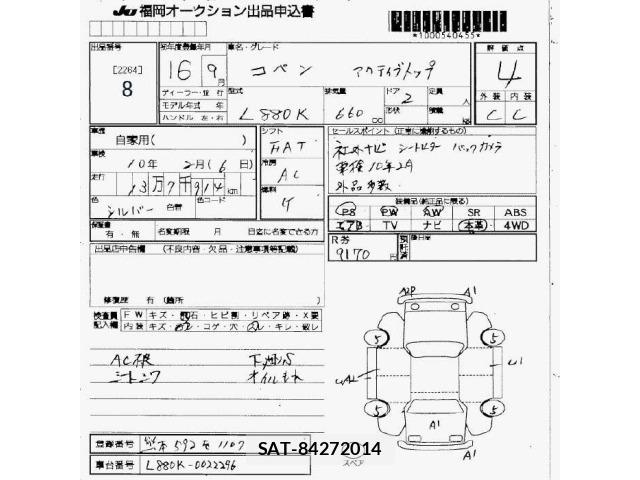 JU 福岡オークション出品申込書
*1000540455*
出品番号
[2264]
8
初年度登録年月
16年9月
車名・グレード
コペン アクティブトップ
評価点
4
外装 内装
C C
ディーラー・並行
モデル年式 年
ハンドル 左・右
型式
L880K
排気量
660 CC
ドア
2
形状
定員 人
積載 kg
車歴
自家用( )
車検
10年 2月(6日)
走行
13万7千914km
色
シルバー
色替
色コード
シフト
FAT
冷房
AC
燃料
ガ
セールスポイント (正常に機能するもの)
社外ナビ シートヒーター バックカメラ
車検10年2月
外品多数
装備品(純正品に限る)
PS PW AW SR ABS
エアB TV ナビ 本革 4WD
保証書
有・無
名変期限 月 日迄に名変できる方
R券
9170円
出品店申告欄 (不良内容・欠品・注意事項等記載)
修復歴 有(箇所 )
検査員記入欄
FW キズ・飛石・ヒビ割・リペア跡・X要
内装 キズ・・コゲ・穴・・キレ・破レ
AC
シート
下
オイルもれ
A2P A1
S S
UA2 U1
S S
A1
A1
スペア
登録番号
熊本 592 1107
車台番号
L880K-0022296
SAT-84272014